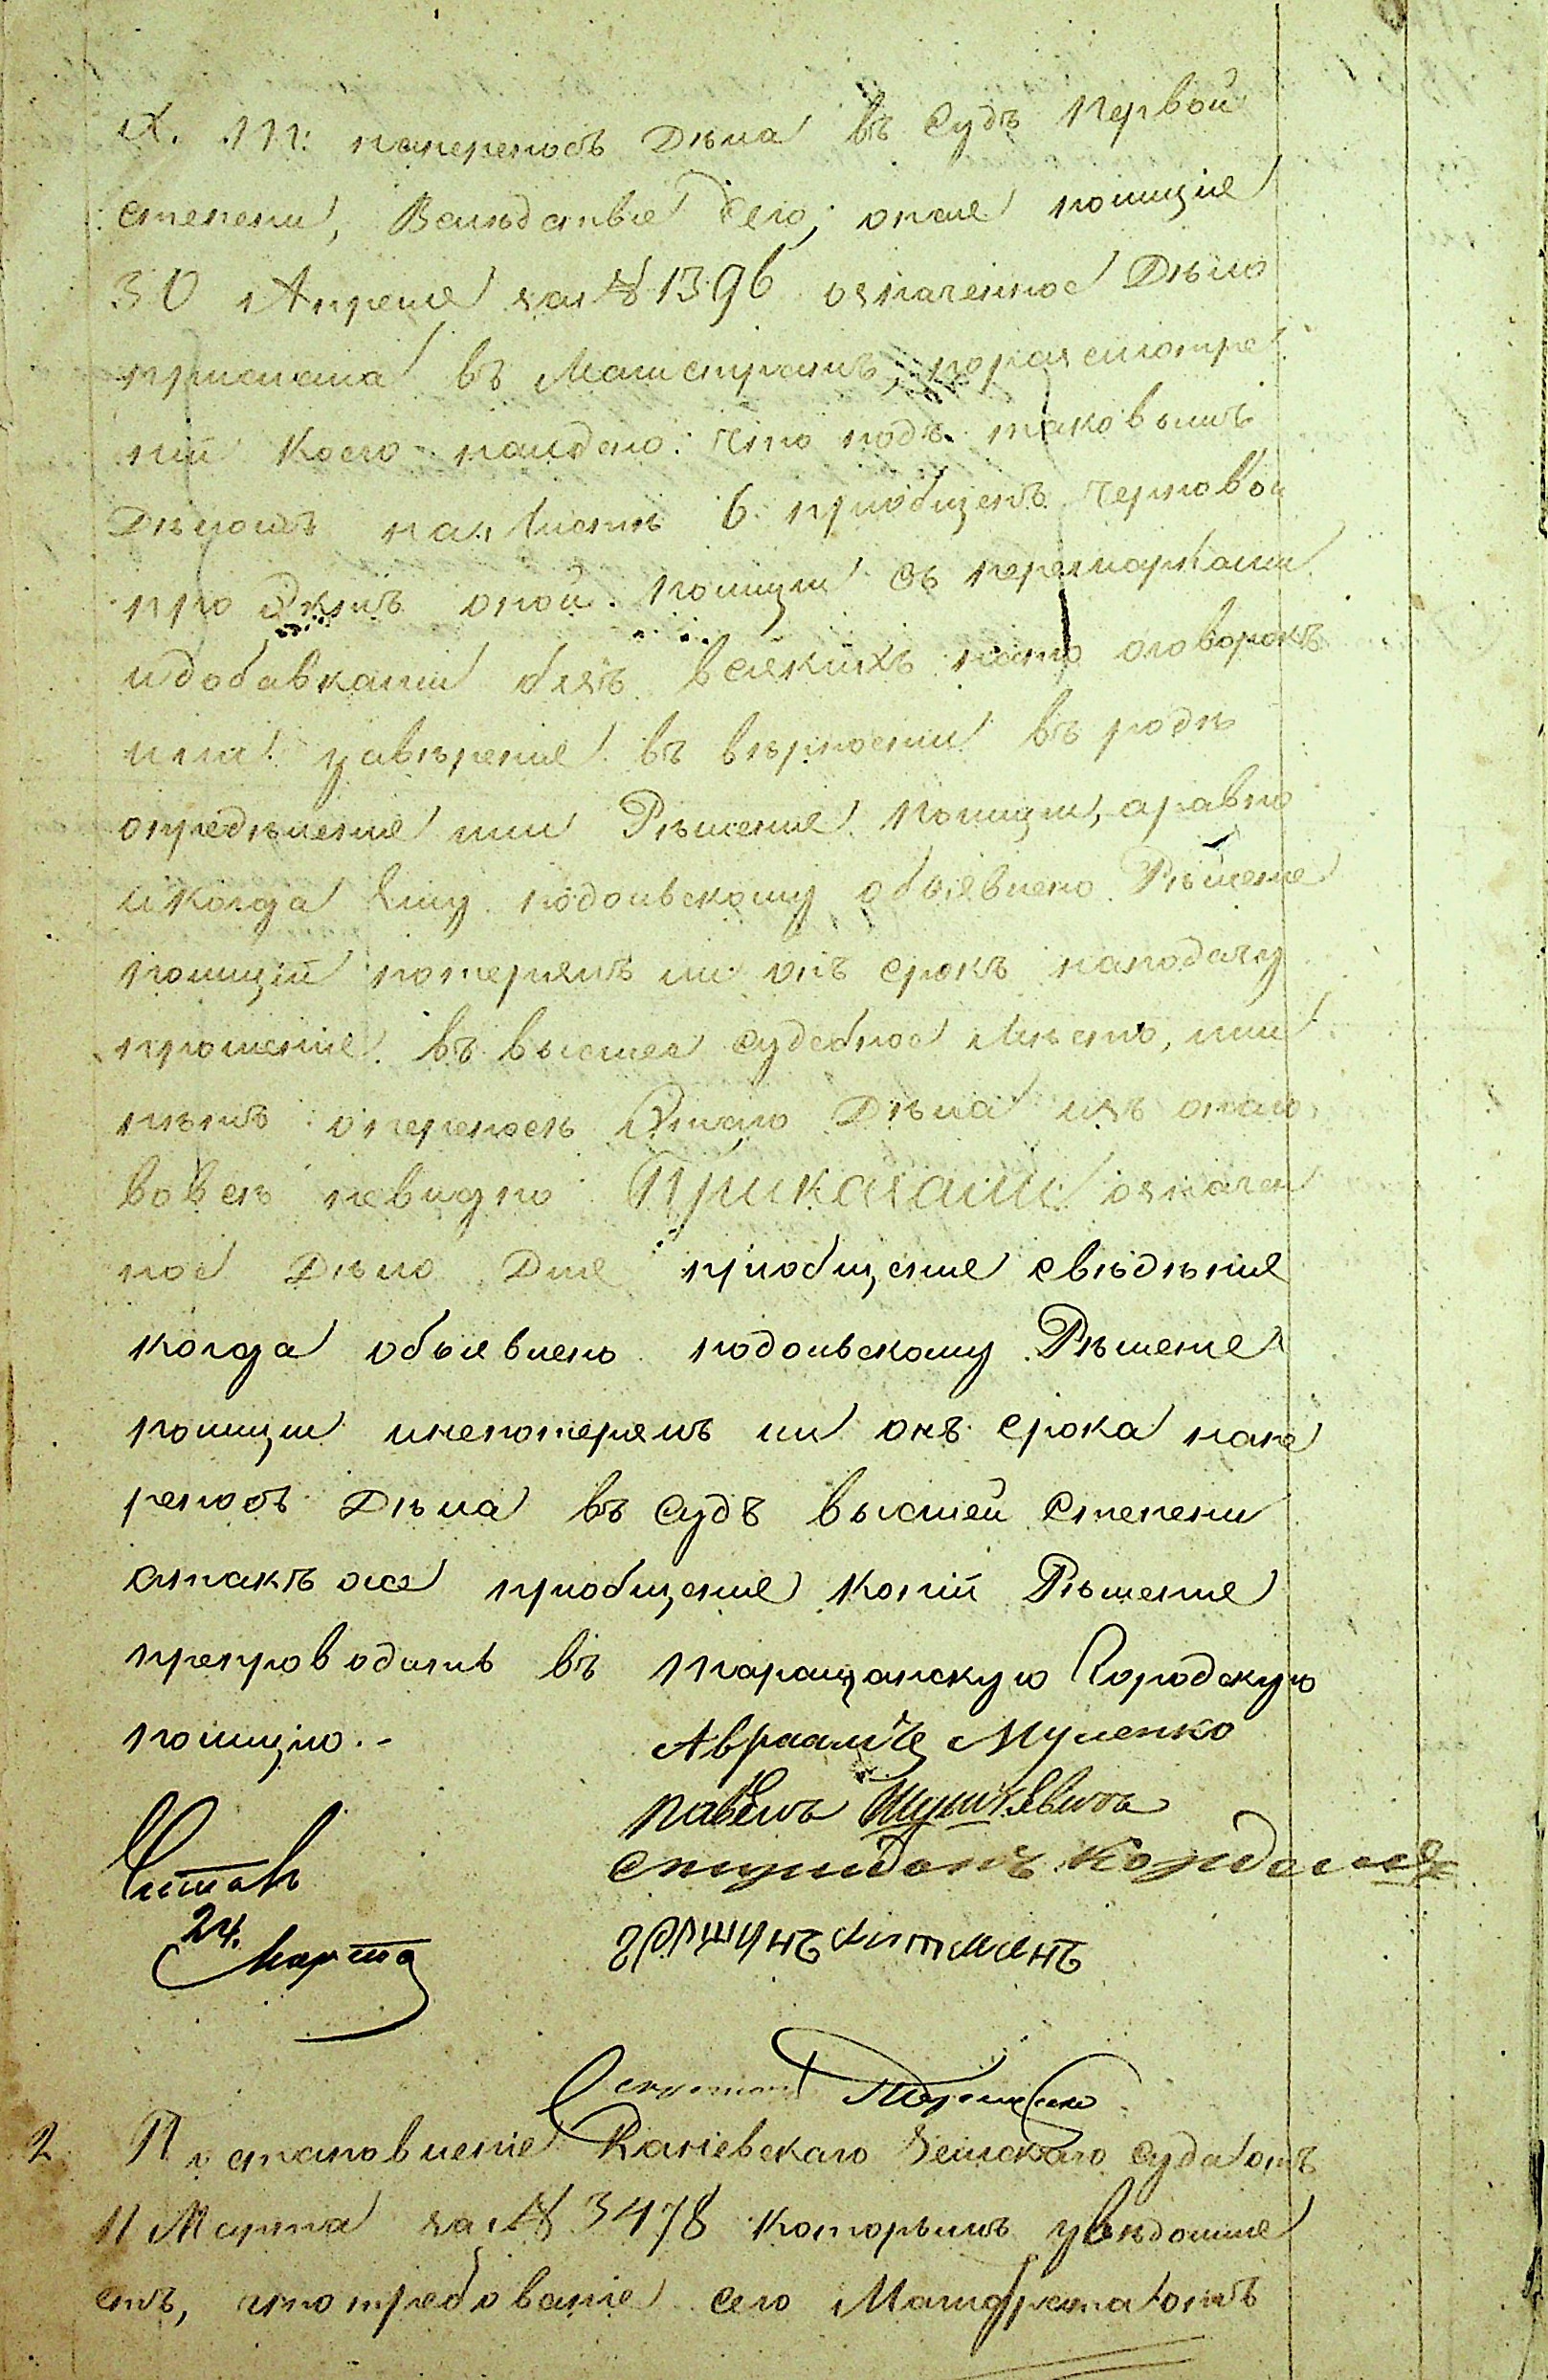 наперепосъ Дѣла въ Судъ Первой
степени, Вслѣдствіе чего, оная полиція
30 Апреля за № 1396 означенное Дѣло
прислала въ Магистратъ, порозсмотре
ніи коего найдено: что подъ таковымъ
Дѣломъ на листѣ 6 приобщенъ черновой
оной полиціи съ перемарками
и добавками безъ всякихъ на то оговорокъ
или завѣренія въ вѣрности въ родѣ
определенія или Рѣшенія полиціи, а равно
и когда ему подольскому объявлено Рѣшеніе
полиціи потерялъ ли онъ срокъ наподачу
прошенія въ высшея судебное Мѣсто, или
нѣтъ о переносѣ Этаго Дѣла изъ онаго
вовсѣ невидно Приказали: означен
ное Дѣло Для приобщенія свѣдѣнія
когда объявлено подольскому Рѣшеніе
полиціи инепотерялъ ли онъ срока напе
реносъ Дѣла въ Судъ высшей Степени
атакъ же приобщенія копіи Рѣшенія
препроводить въ Таращанскую Городскую
полицію.-
Авраамъ Муленко
Павелъ
Спиридонъ
Читалъ
24.
Марта
Секретарь
2 Постановленіе Каніевскаго Земскаго суда отъ
11 Марта за № 3478 которымъ увѣдомля
етъ, что требованіе сего Магистрата отъ